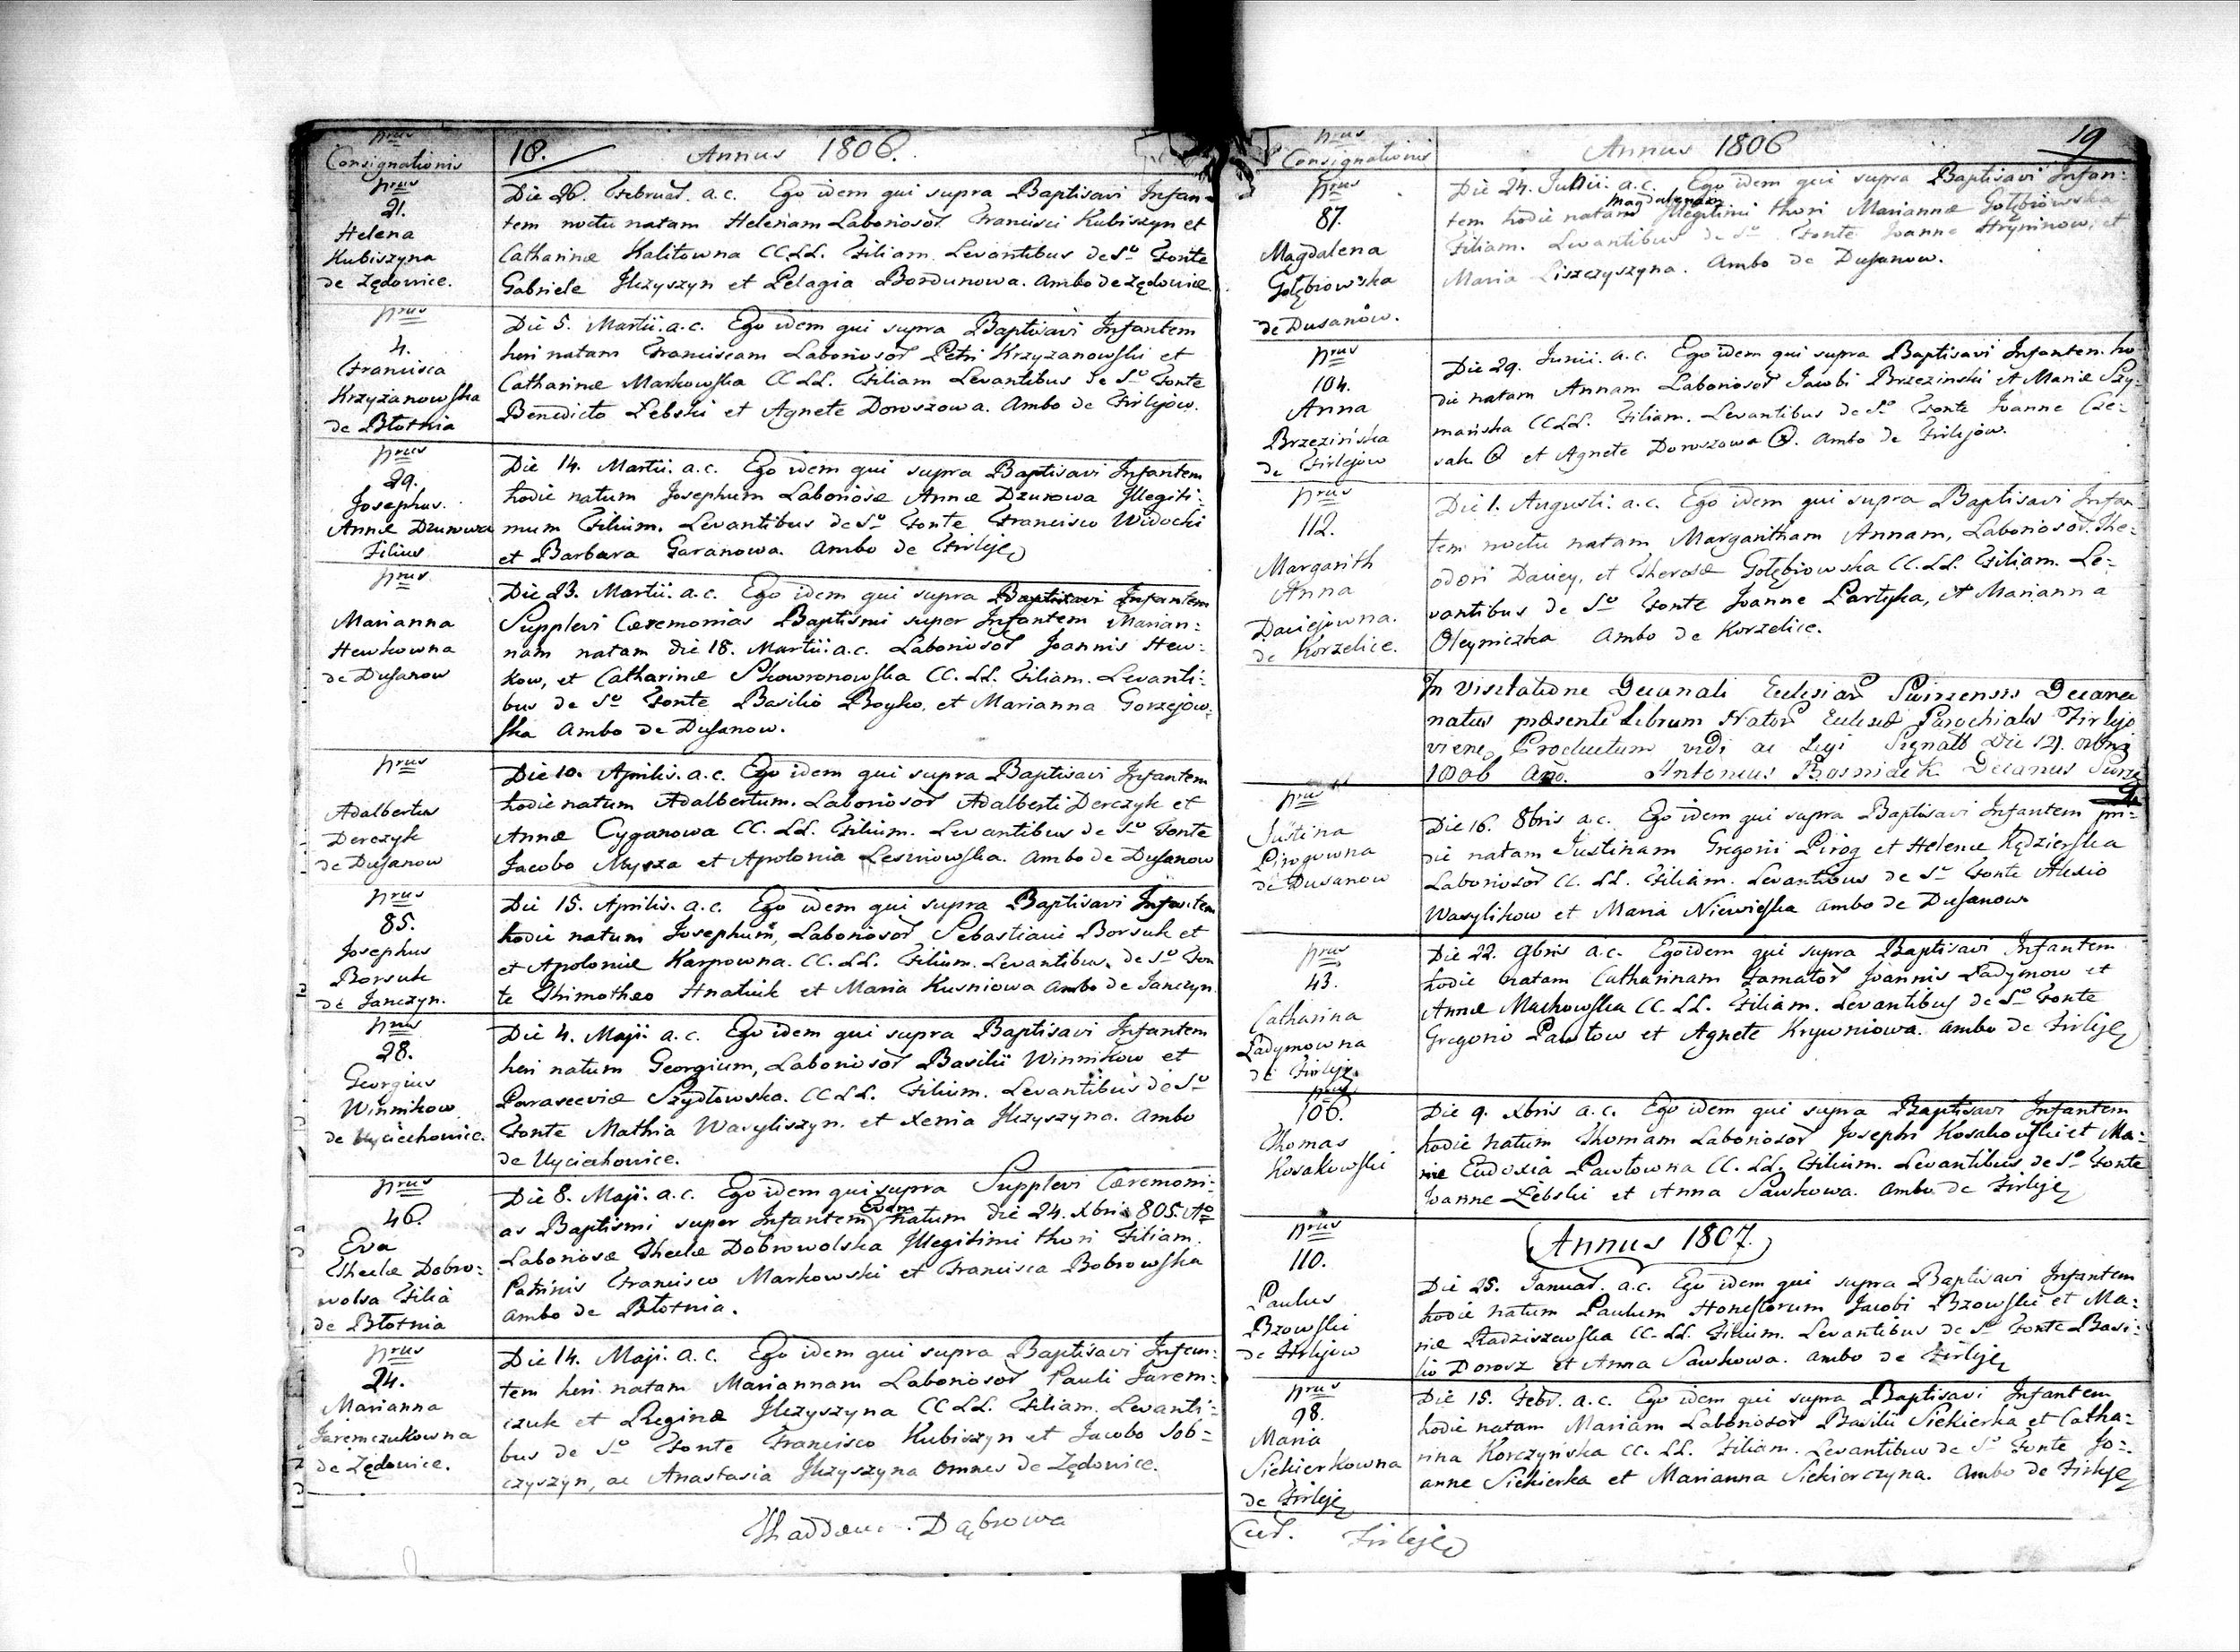 nrus
Consignationis
18. Annus 1806.
nrus
21.
Helena
Kubiszyna
de Zędowice.
Die 26. Februar. a.c. Ego idem qui supra Baptisavi Infan-
tem noctu natam Helenam Laboriosor Francisci Kubiszyn et
Catharinæ Kalitowna CC.LL. Filiam. Levantibus de So Fonte
Gabriele Ilczyszyn et Pelagia Bordunowa. Ambo de Zędowice.
nrus
4.
Francisca
Krzyżanowska
de Błotnia
Die 5. Martii. a.c. Ego idem qui supra Baptisavi Infantem
heri natam Franciscam Laboriosor Petri Krzyżanowski et
Catharinæ Markowska CC LL. Filiam Levantibus de So Fonte
Benedicto Łebski et Agnete Doroszowa. Ambo de Firlejow.
nrus
29.
Josephus.
Annæ Dzurowa
Filius
Die 14. Martii. a.c. Ego idem qui supra Baptisavi Infantem
hodie natum Josephum Laboriosæ Annæ Dzurowa Illegiti:
mum Filium. Levantibus de So Fonte Francisco Widocki
et Barbara Garanowa. Ambo de Firlej
nrus
Marianna
Hewkowna
de Dusanow
Die 23. Martii. a.c. Ego idem qui supra Baptisavi Infantem
Supplevi Cæremonias Baptismi super Infantem Marian:
nam natam die 18. Martii. a.c. Laboriosor Joannis Hew:
kow, et Catharinæ Skowronowska CC. LL. Filiam. Levanti:
bus de So Fonte Basilio Boyko, et Marianna Gorzejow:
ska Ambo de Dusanow.
nrus
Adalbertus
Derczyk
de Dusanow
Die 10. Aprilis. a.c. Ego idem qui supra Baptisavi Infantem
hodie natum Adalbertum. Laboriosor Adalberti Derczyk et
Annæ Cyganowa CC. LL. Filium. Levantibus de So Fonte
Jacobo Mysza et Apolonia Lesniowska. Ambo de Dusanow
nrus
85.
Josephus
Borsuk
de Janczyn.
Die 15. Aprilis. a.c. Ego idem qui supra Baptisavi Infantem
hodie natum Josephum, Laboriosor Sebastiani Borsuk et
et Apoloniæ Karpowna. CC. LL. Filium. Levantibus de So Fon
te Thimotheo Hnatiuk et Maria Kusniowa Ambo de Janczyn.
nrus
28.
Georgius
Winnikow
de Uyciechowice.
Die 4. Maji. a.c. Ego idem qui supra Baptisavi Infantem
heri natum Georgium, Laboriosor Basilii Winnikow et
Parasceviæ Szydłowska. CC LL. Filium. Levantibus de So
Fonte Mathia Wasyliszyn. et Xenia Ilczyszyna. Ambo
de Uyciechowice.
nrus
46.
Eva
Theclæ Dobro:
wolsa Filia
de Błotnia
Die 8. Maji. a.c. Ego idem qui supra Supplevi Cæremoni:
as Baptismi super Infantem Evam natum die 24. Xbris 805. Ao
Laboriosæ Theclæ Dobrowolska Illegitimi thori Filiam.
Patrinis Francisco Markowski et Francisca Bobrowska
Ambo de Błotnia.
nrus
24.
Marianna
Jaremczukowna
de Zędowice.
Die 14. Maji. a.c. Ego idem qui supra Baptisavi Infan:
tem heri natam Mariannam Laboriosor Pauli Jarem:
czuk et Reginæ Ilczyszyna CC LL. Filiam. Levanti:
bus de So Fonte Francisco Kubiszyn et Jacobo Sob:
czyszyn, ac Anastasia Ilczyszyna Omnes de Zędowice.
Thaddeus Dąbrowa
nrus
Consignationis
Annus 1806
19
nrus
87.
Magdalena
Gołębiowska
de Dusanow.
Die 24. Junii. a.c. Ego idem qui supra Baptisavi Infan:
tem hodie natam Magdalenam Illegitimi thori Mariannæ Gołębiowska
Filiam. Levantibus de So Fonte Joanne Hryninow, et
Maria Liszczyszyna. Ambo de Dusanow.
nrus
104.
Anna
Brzezińska
de Firlejow
Die 29. Junii. a.c. Ego idem qui supra Baptisavi Infantem ho
die natam Annam Laboriosor Jacobi Brzezinski et Mariæ Szy:
mańska CC LL. Filiam. Levantibus de So Fonte Joanne Cze:
sak et Agnete Doroszowa. Ambo de Firlejow.
nrus
112.
Margarith
Anna
Daviejowna.
de Korzelice.
Die 1. Augusti. a.c. Ego idem qui supra Baptisavi Infan
tem noctu natam Margaritham Annam, Laboriosor. The:
odori Daviey, et Theresæ Gołębiowska CC. LL. Filiam. Le:
vantibus de So Fonte Joanne Partyka, et Marianna
Oleyniczka Ambo de Korzelice.
In Visitatione Decanali Ecclesiar Swirzensis Decana
natus præsente Librum Nator Ecclesiæ Parochialis Firlejo
vienc Productum vidi ac Legi Signatt Die 121.
1806 Ao. Antonius Bosniacki Decanus Swirz
nrus
Justina
Pirogowna
de Dusanow
Die 16. 8bris a.c. Ego idem qui supra Baptisavi Infantem pri:
die natam Justinam Gregorii Pirog et Helenæ Kędzierska
Laboriosor CC. LL. Filiam. Levantibus de So Fonte Alexio
Wasylikow et Maria Niewieska Ambo de Dusanow
nrus
43.
Catharina
Ładymowna
de Firlej.
Die 22. 9bris a.c. Ego idem qui supra Baptisavi Infantem
hodie natam Catharinam Famator Joannis Ładymow et
Annæ Machowska CC. LL. Filiam. Levantibus de So Fonte
Gregorio Pawłow et Agnete Krywniowa. Ambo de Firlej
nrus
106.
Thomas
Kosakowski
Die 9. Xbris a.c. Ego idem qui supra Baptisavi Infantem
hodie natum Thomam Laboriosor Josephi Kosakowski et Ma:
riæ Eudoxia Pawłowna CC. LL. Filium. Levantibus de So Fonte
Joanne Łebski et Anna Sawkowa. Ambo de Firlej
Annus 1807.
nrus
110.
Paulus
Bzowski
de Firlejow
Die 25. Januar. a.c. Ego idem qui supra Baptisavi Infantem
hodie natum Paulum Honestorum Jacobi Bzowski et Ma:
riæ Radziszewska CC. LL. Filium. Levantibus de So Fonte Basi:
lio Dorosz et Anna Sawkowa. Ambo de Firlej
nrus
98.
Maria
Siekierkowna
de Firlej
Die 15. Febr. a.c. Ego idem qui supra Baptisavi Infantem
hodie natam Mariam Laboriosor Basilii Siekierka et Catha:
rina Korczyńska CC. LL. Filiam. Levantibus de So Fonte Jo:
anne Siekierka et Marianna Siekierczyna. Ambo de Firlej
Cur. Firlej